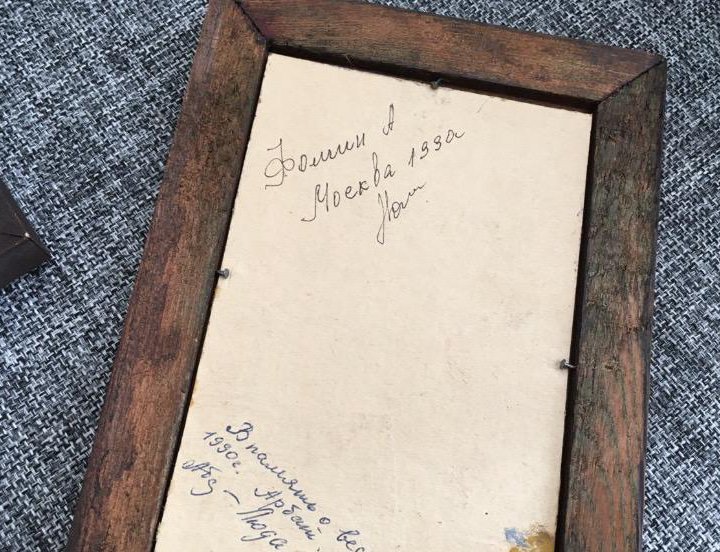 Фомин А
Москва 1990
В память о вес
1990г. Арбат
– Люда